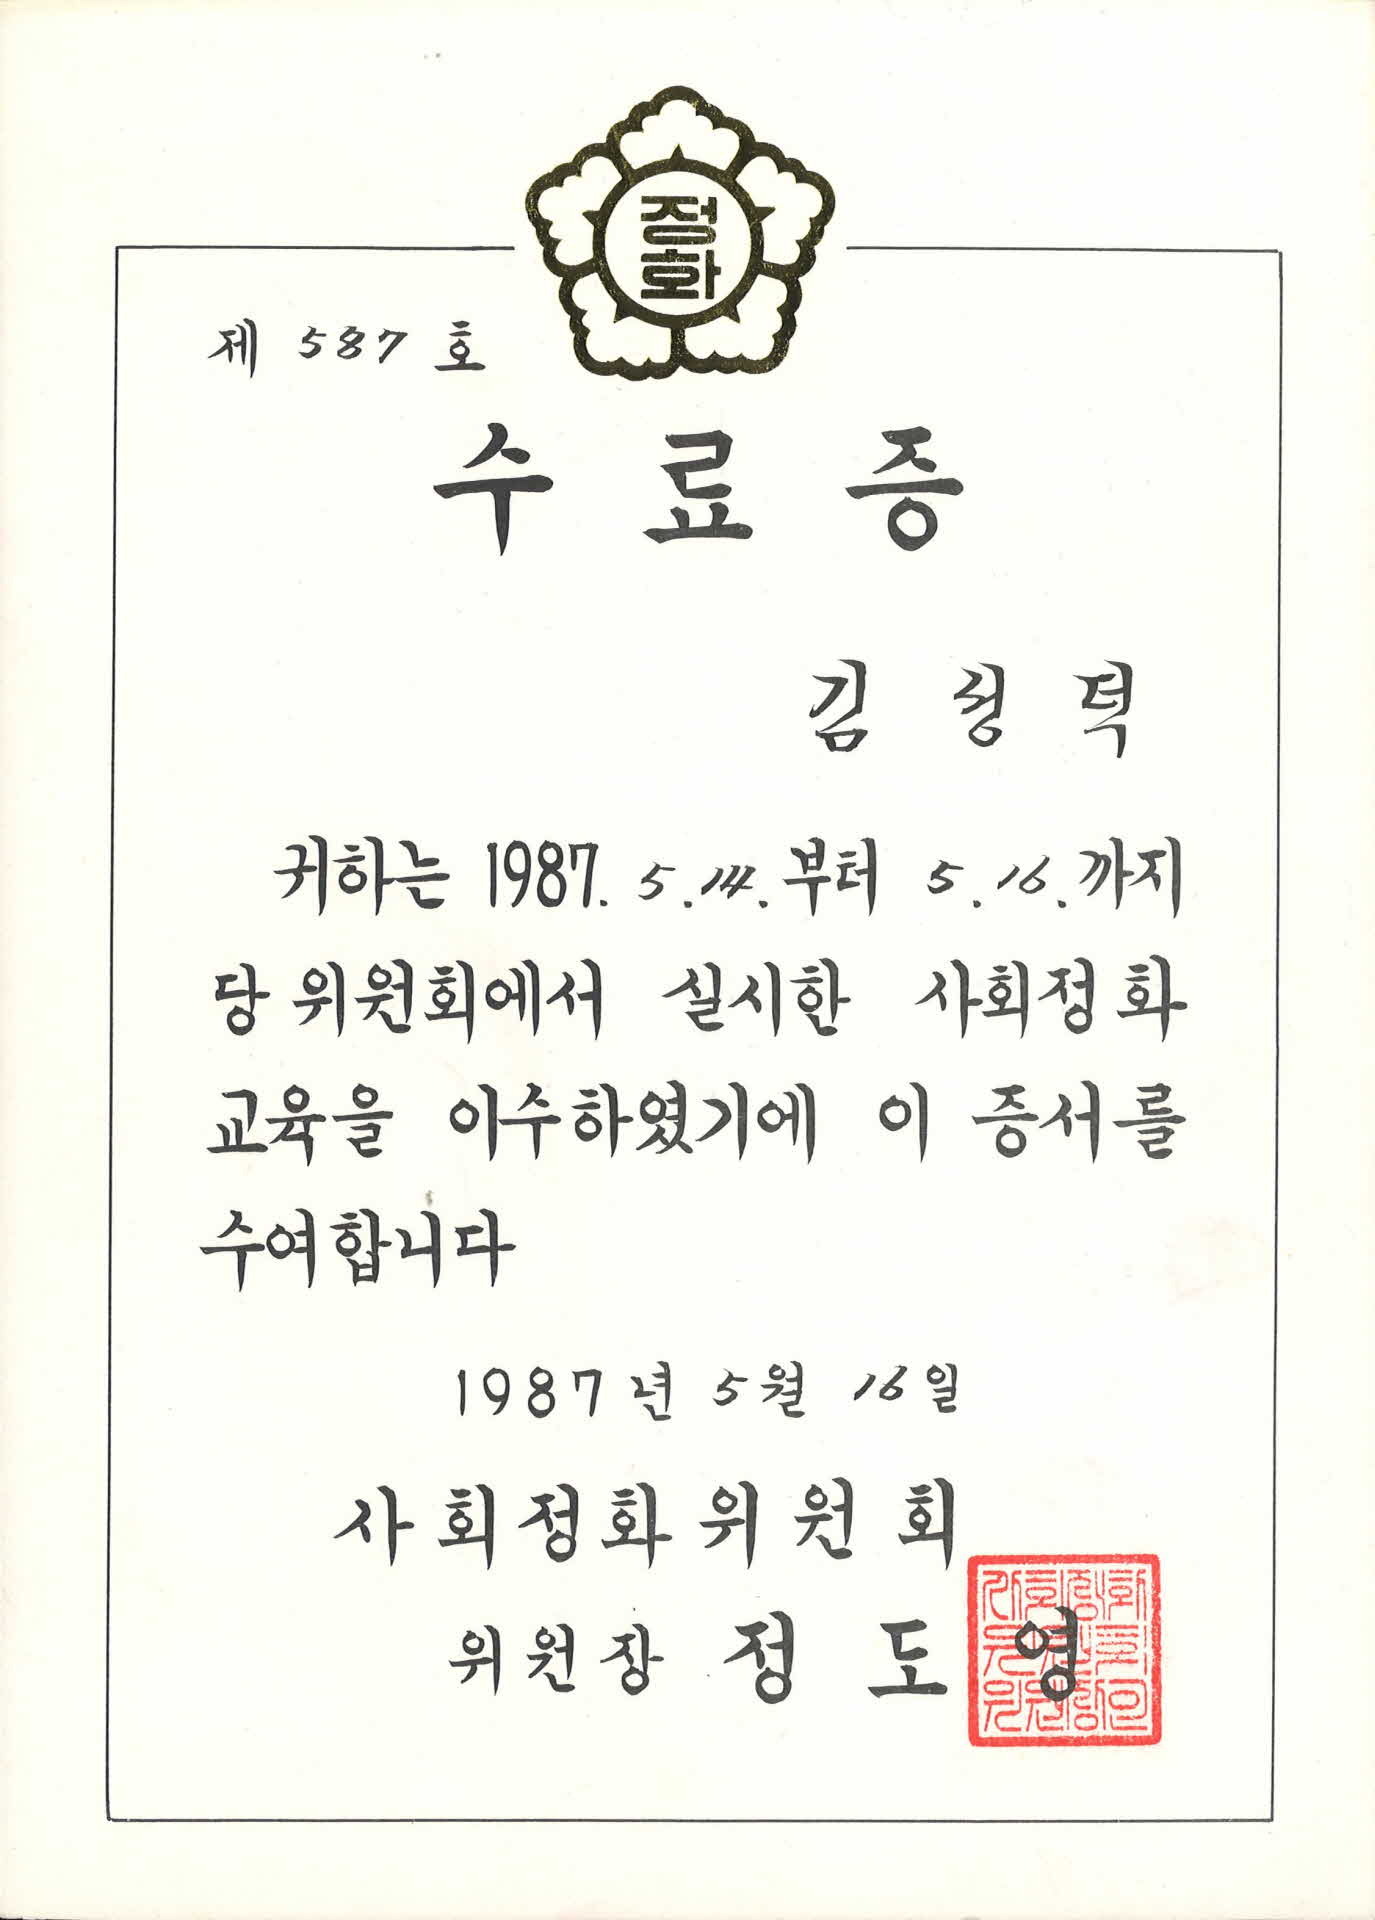 정화
제 587 호
수료증
김 경 덕
귀하는 1987. 5. 14. 부터 5. 16. 까지
당 위원회에서 실시한 사회정화
교육을 이수하였기에 이 증서를
수여합니다
1987년 5월 16일
사회정화위원회
위원장 정 도 영